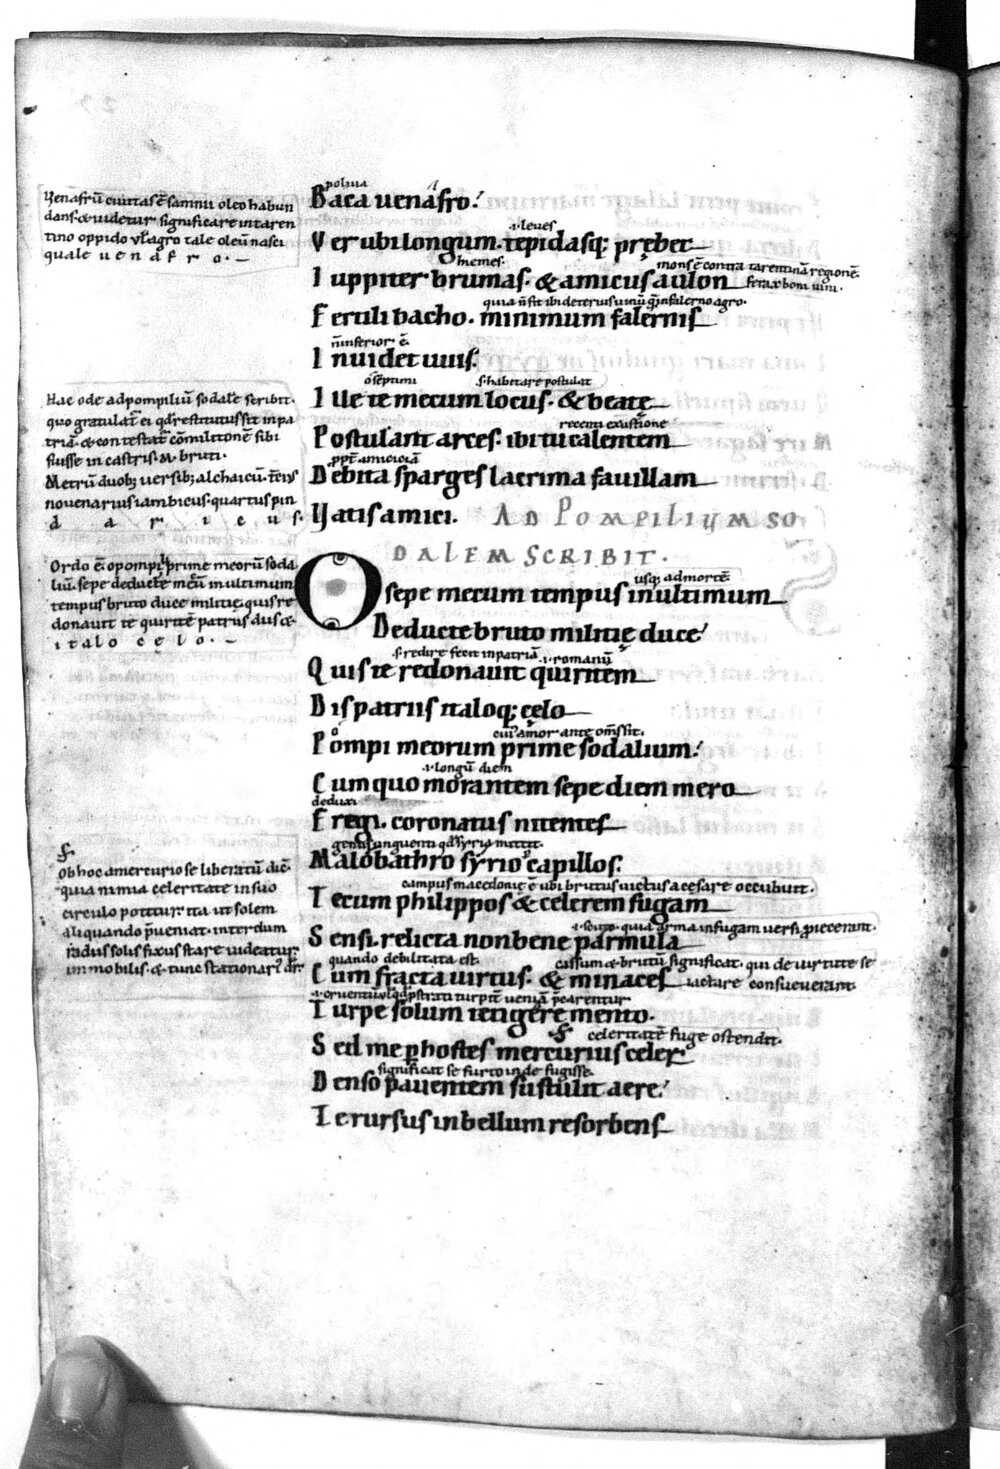 oliua
Baca uenafro.
.i. leues
Ver ubi longum. tepidasq; prębet
hiemes. mons ē contra tarentinā regionē.
Iuppiter brumas. & amicus aulon ferax boni uini.
quia n̄ sit ibi deterius uinū q̄ in falerno agro.
Fertili bacho. minimum falernis
n̄ inferior ē.
Inuidet uuis.
o septimi s. habitare postulat
Ille te mecum locus. & beatę
recenti exustione
Postulant arces. ibi tu calentem
ppt̄ amiciciā
Debita sparges lacrima fauillam
Vatis amici. AD POMPILIUM SO
DALEM SCRIBIT.
usq; ad mortē.
O sepe mecum tempus in ultimum
Deducte bruto militię duce
.s. redire fecit in patriā .i. romanū
Quis te redonauit quiritem
Dis patriis italoq; cęlo
o cui' amor ante om̄s sit.
Pompi meorum prime sodalium
.i. longū diem
Cum quo morantem sepe diem mero
deduxi
Fregi. coronatus nitentes
genus unguenti qd syria mittit.
Malobathro syrio capillos.
campus macedonię ē ubi brutus uictus a cesare occubuit.
Tecum philippos & celerem fugam
.i. scuto. quia arma in fugam uersi proiecerant.
Sensi. relicta non bene parmula
quando debilitata est. cassium & brutū significat. qui de uirtute se
Cum fracta uirtus. & minaces iactare consueuerant.
Turpe solum tetigere mento.
celeritatē fugę ostendit.
Sed me p hostes mercurius celer
significat se furto inde fugisse.
Denso pauentem sustulit aere
Te rursus in bellum resorbens
Venafrū ciuitas ē samnii oleo habun
dans. & uidetur significare in taren
tino oppido ul agro tale oleū nasci
quale uenafro.
Hac ode ad pompiliū sodalē scribit.
quo gratulat̄ ei qd restitutus sit in pa
tria. & contestat̄ cōmilitonē sibi
fuisse in castris. M. bruti.
Metrū duob; uersib; alchaicū. t̄cius
nouenarius iambicus. quartus pin
daricus.
Ordo ē. o pompili prime meorū soda
liū. sepe deducte mecū in ultimum
tempus bruto duce militię. quis re
donauit te quiritē patriis diis &
italo celo.
Ob hoc a mercurio se liberatū dic̄.
quia nimia celeritate in suo
circulo potitur. ita ut solem
aliquando p̄ueniat. interdum
radiis solis fixus stare uideatur
inmobilis. & tunc stationari' dr̄.